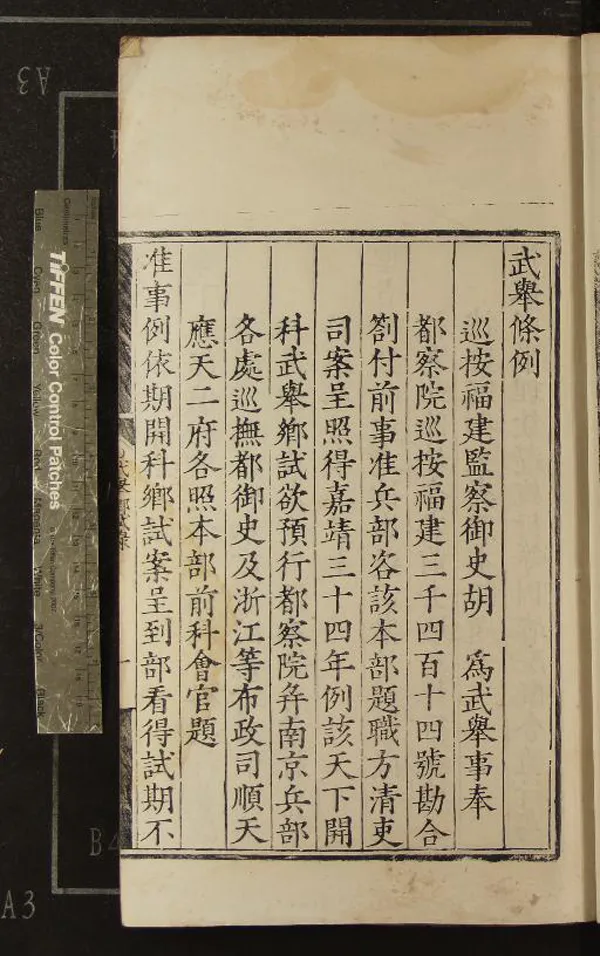 武舉條例
巡按福建監察御史胡　為武舉事奉
都察院巡按福建三千四百十四號勘合
劄付前事准兵部咨該本部題職方清吏
司案呈照得嘉靖三十四年例該天下開
科武舉鄉試欲預行都察院并南京兵部
各處巡撫都御史及浙江等布政司順天
應天二府各照本部前科會官題
准事例依期開科鄉試案呈到部看得試期不
武舉鄉試錄
一
TIFFEN Color Control Patches
Blue
Cyan
Green
Yellow
Red
Magenta
White
3/Color
Black
A3
A3